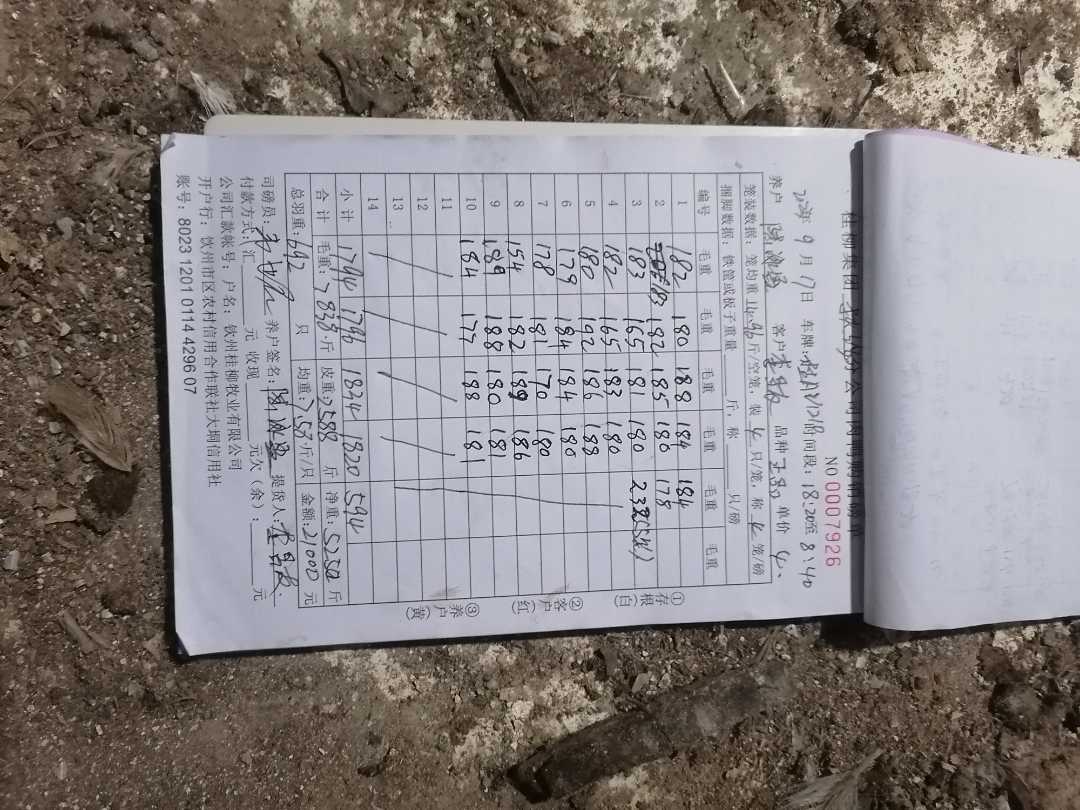 桂柳集团
分公司肉鸭购销磅单
NO 0007926
9月17日 车牌: 时间段: 18:20至8:40
养户 客户 品种 单价 4.
笼装数据: 笼均重14.96斤/空笼, 装4只/笼, 称4笼/磅
捆脚数据: 铁筐或板子重量 斤, 称 只/磅
编号 毛重 毛重 毛重 毛重 毛重 毛重
1 182 180 188 184 184
2 183 182 185 180 178
3 183 165 181 180 232(5笼)
4 182 165 183 180
5 180 192 186 188
6 179 184 184 180
7 178 181 170 180
8 154 182 189 186
9 189 188 180 181
10 184 177 188 181
11
12
13
14
小计 1794 1796 1834 1820 594
合计 毛重: 7838.斤 皮重: 2588 斤 净重: 5250 斤
总羽重: 692 只 均重: 7.58斤/只 金额: 21000 元
司磅员: 养户签名: 提货人:
付款方式: (汇 元 收现 元欠(余): 元
公司汇款帐号: 户名: 钦州桂柳牧业有限公司
开户行: 钦州市区农村信用合作联社大垌信用社
账号: 8023 1201 0114 4296 07
①存根(白) ②客户(红) ③养户(黄)